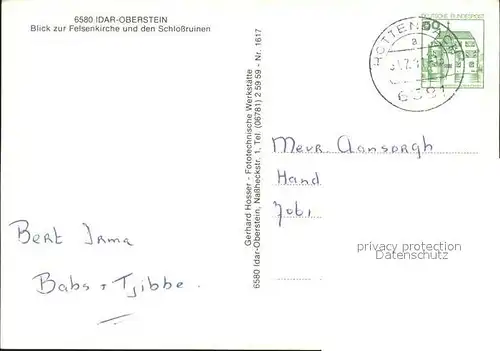 6580 IDAR-OBERSTEIN
Blick zur Felsenkirche und den Schloßruinen
DEUTSCHE BUNDESPOST
HOTTENBACH
a
6581
Gerhard Hosser - Fototechnische Werkstätte
6580 Idar-Oberstein, Naßheckstr. 1, Tel. (06781) 2 59 59 - Nr. 1617
Meur
Hand
Bert Irma
Babs + Tjibbe.
privacy protection
Datenschutz